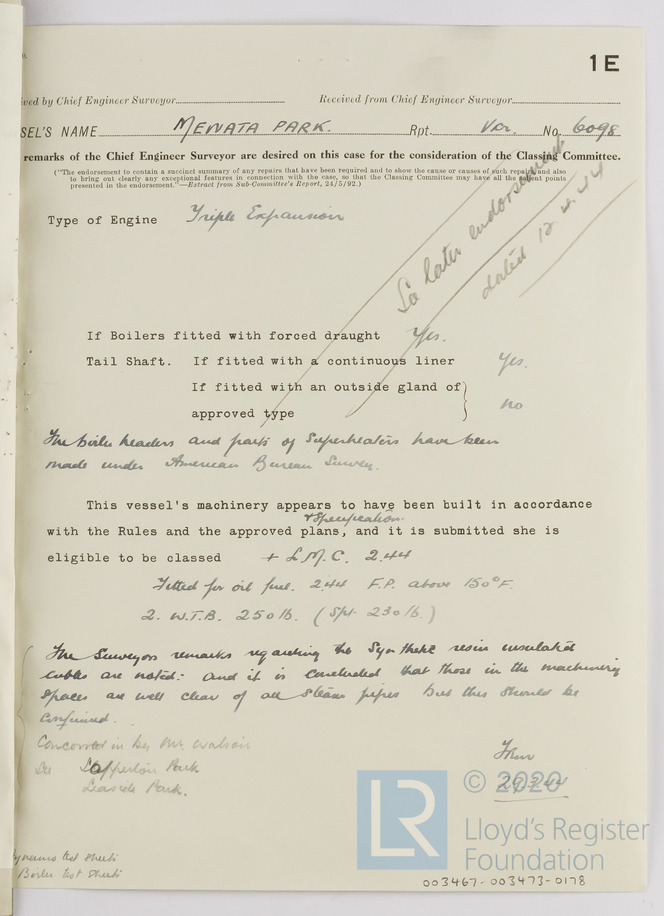 1E
ived by Chief Engineer Surveyor
Received from Chief Engineer Surveyor
SEL'S NAME MEWATA PARK. Rpt. Vcr. No. 6098
remarks of the Chief Engineer Surveyor are desired on this case for the consideration of the Classing Committee.
("The endorsement to contain a succinct summary of any repairs that have been required and to show the cause or causes of such repairs and also
to bring out clearly any exceptional features in connection with the case, so that the Classing Committee may have all the salient points
presented in the endorsement."—Extract from Sub-Committee's Report, 24/5/92.)
See later endorsement
dated 12.4.44
Type of Engine Triple Expansion
If Boilers fitted with forced draught Yes.
Tail Shaft. If fitted with a continuous liner Yes.
If fitted with an outside gland of
approved type no
The boiler headers and parts of Superheaters have been
made under American Bureau Survey.
This vessel's machinery appears to have been built in accordance
& Specification.
with the Rules and the approved plans, and it is submitted she is
eligible to be classed + L.M.C. 2.44
Fitted for oil fuel. 2.44 F.P. above 150°F.
2. W.T.B. 250 lb. (Spt. 230 lb.)
The Surveyors remarks regarding the Synthetic resin insulated
cables are noted:- and it is concluded that those in the machinery
spaces are well clear of all steam pipes but this should be
confirmed.
Concurred in by Mr. Watson
See Lofferton Park
Leaside Park.
Dynamo test sheets
Boiler test sheets
LR
© 2020
Lloyd's Register
Foundation
003467-003473-0178